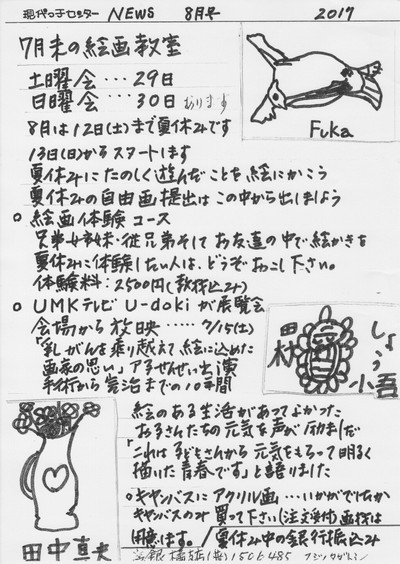 現代っ子センター NEWS 8月号 2017
7月末の絵画教室
土曜会…29日
日曜会…30日 あります
8月は12日(土)まで夏休みです
13日(日)からスタートします
夏休みにたのしく遊んだことを絵にかこう
夏休みの自由画提出はこの中から出しましよう
Fuka
○ 絵画体験コース
兄弟姉妹・従兄弟そしてお友達の中で絵かきを
夏休みに体験したい人は、どうぞおこし下さい。
体験料:2500円(教材込み)
○ UMKテレビ U-dokiが展覧会
会場から放映……7/15(土)
「乳がんを乗り越えて絵に込めた
画家の思い」アヤせんせい出演
手術から完治までの10年間
田村 しょう
小吾
絵のある生活があってよかった
お子さんたちの元気な声が励ましだ
「これは子どもさんから元気をもらって明るく
描いた青春です」と語りました
○キャンバスにアクリル画…いかがでしたか
キャンバスのみ買って下さい(注文受付)画材は
用意します。/夏休み中の銀行振込み
宮銀 橘支店(普)1506485 フジノ
田中真央